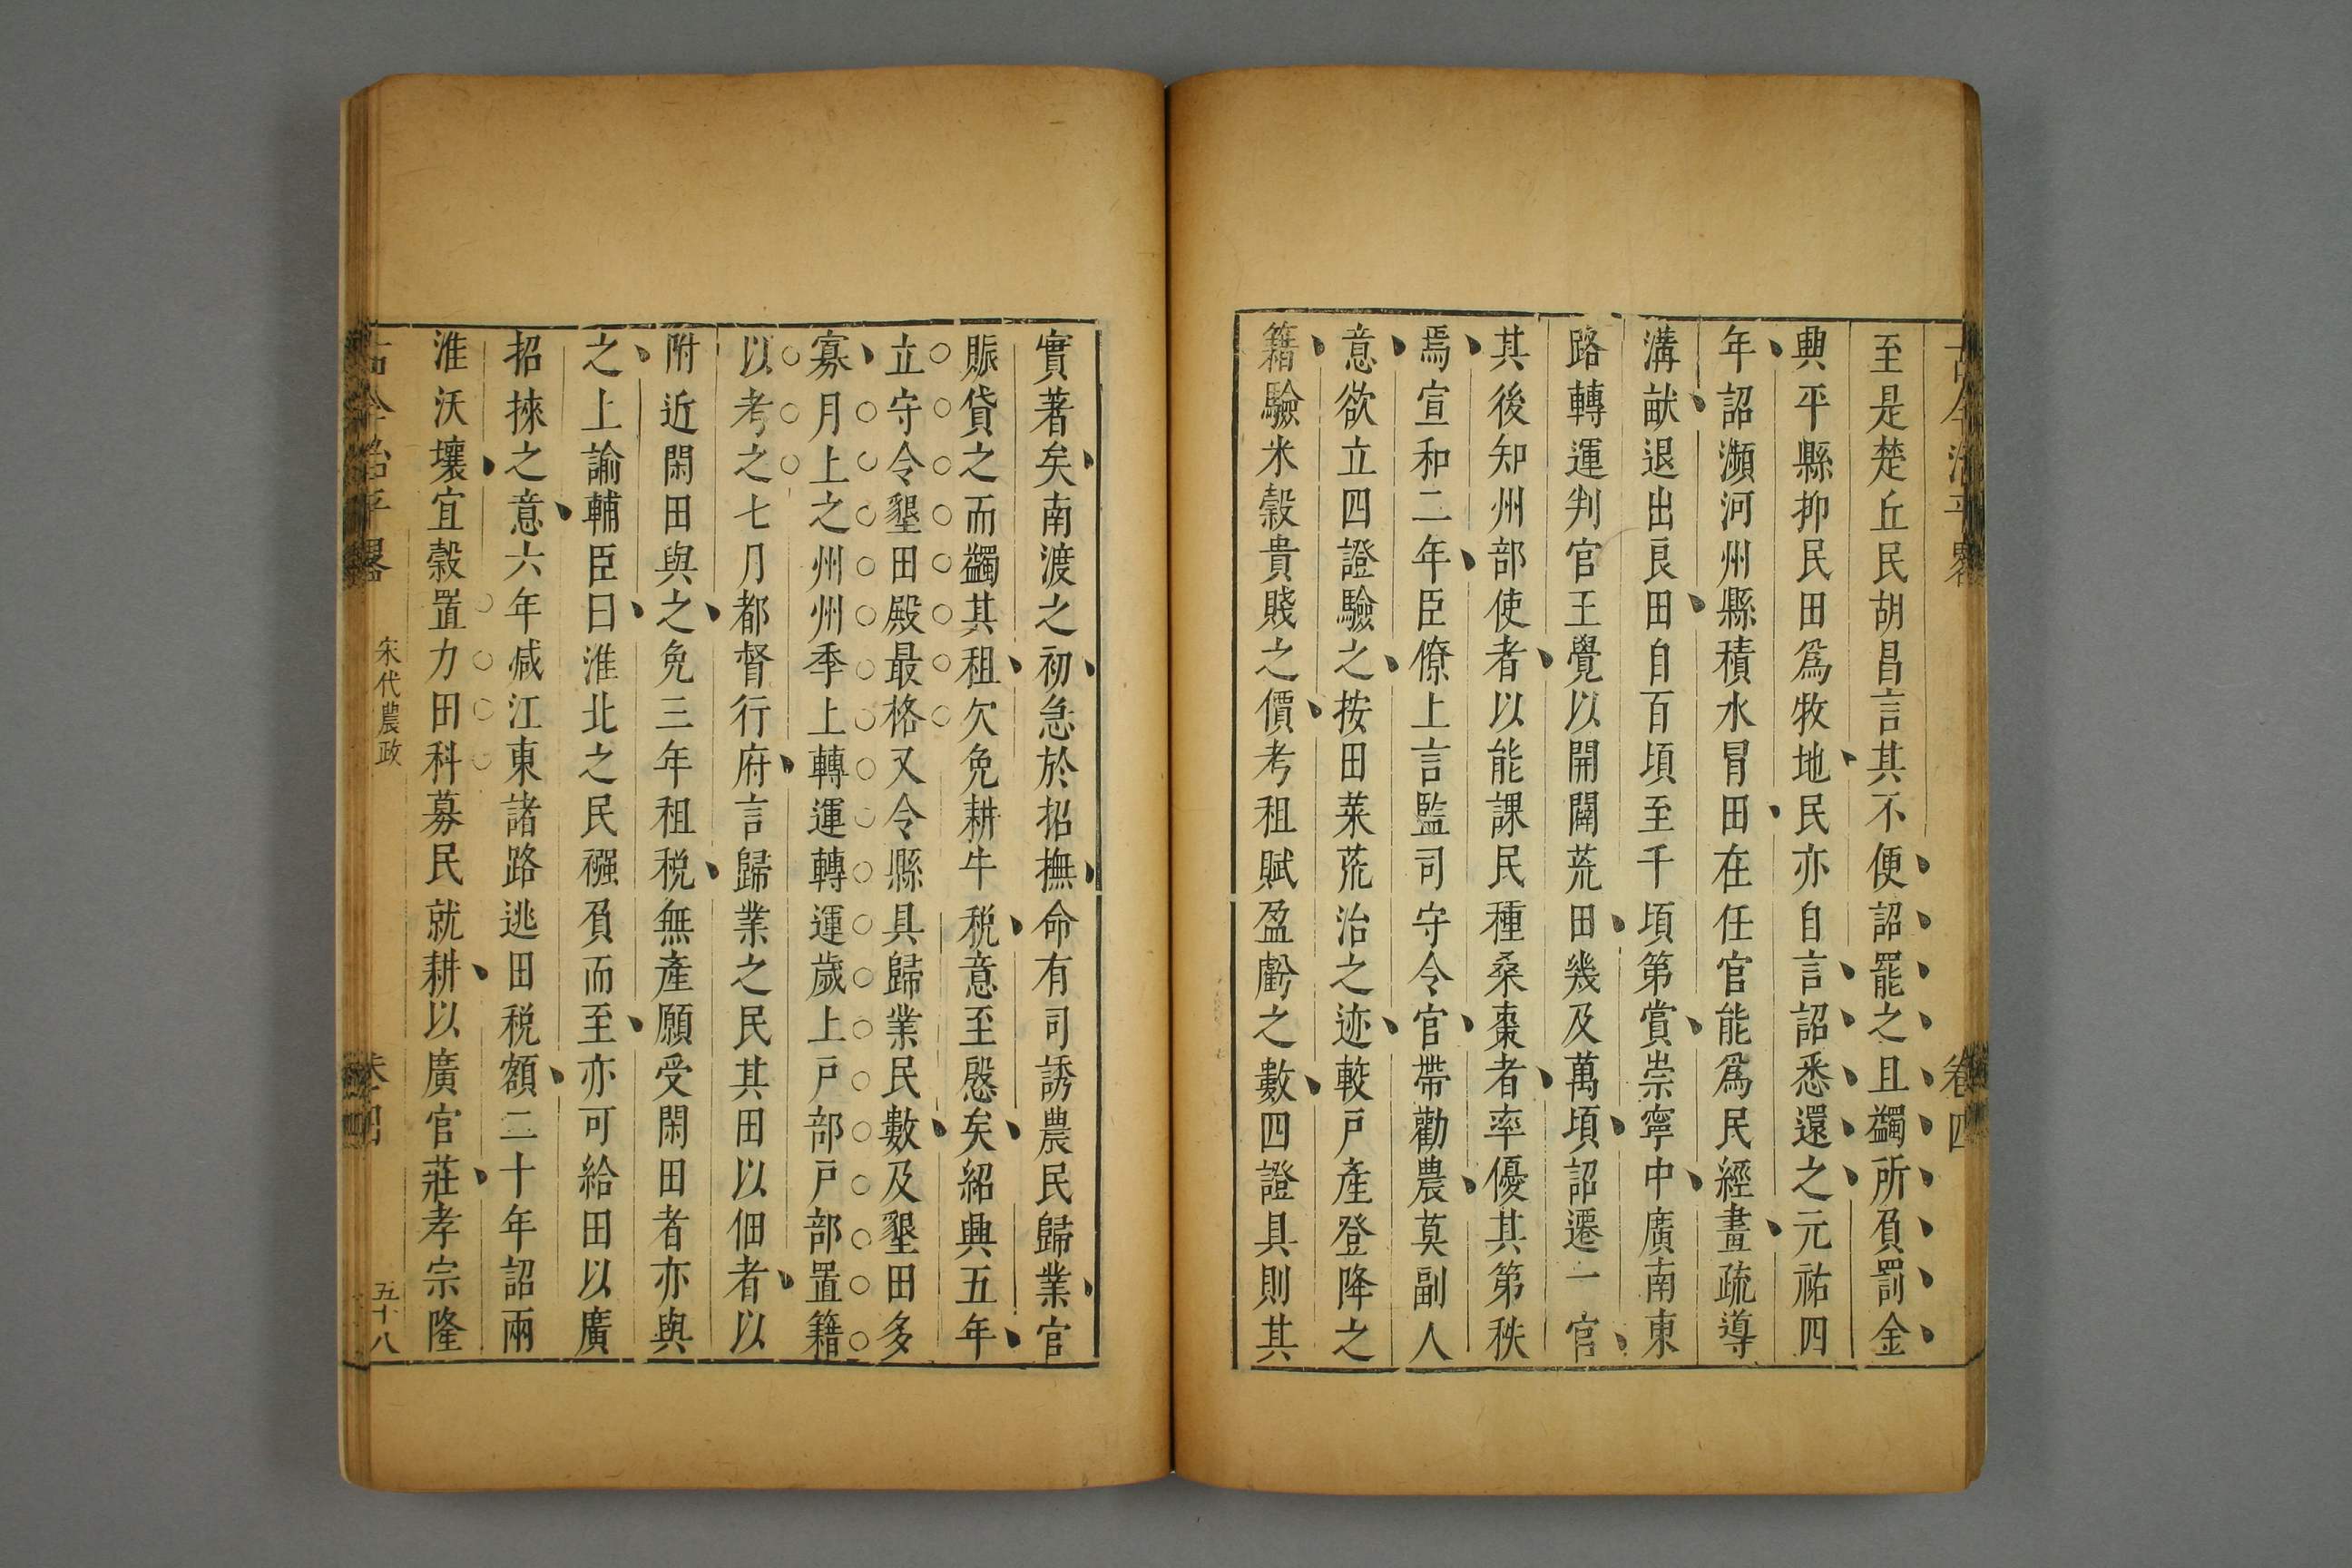 古今治平畧
卷四
至是楚丘民胡昌言其不便詔罷之且蠲所負罰金
興平縣抑民田爲牧地民亦自言詔悉還之元祐四
年詔瀕河州縣積水冒田在任官能爲民經畫疏導
溝畎退出良田自百頃至千頃第賞崇寧中廣南東
路轉運判官王覺以開闢荒田幾及萬頃詔遷一官
其後知州部使者以能課民種桑棗者率優其第秩
焉宣和二年臣僚上言監司守令官帶勸農莫副人
意欲立四證驗之按田萊荒治之迹較戸產登降之
籍驗米穀貴賤之價考租賦盈虧之數四證具則其
實著矣南渡之初急於招撫命有司誘農民歸業官
賑貸之而蠲其租欠免耕牛税意至慇矣紹興五年
立守令墾田殿最格又令縣具歸業民數及墾田多
寡月上之州州季上轉運轉運歲上戸部戸部置籍
以考之七月都督行府言歸業之民其田以佃者以
附近閑田與之免三年租税無產願受閑田者亦與
之上諭輔臣曰淮北之民襁負而至亦可給田以廣
招捒之意六年减江東諸路逃田税額二十年詔兩
淮沃壤宜穀置力田科募民就耕以廣官莊孝宗隆
古今治平畧
宋代農政
卷四
五十八